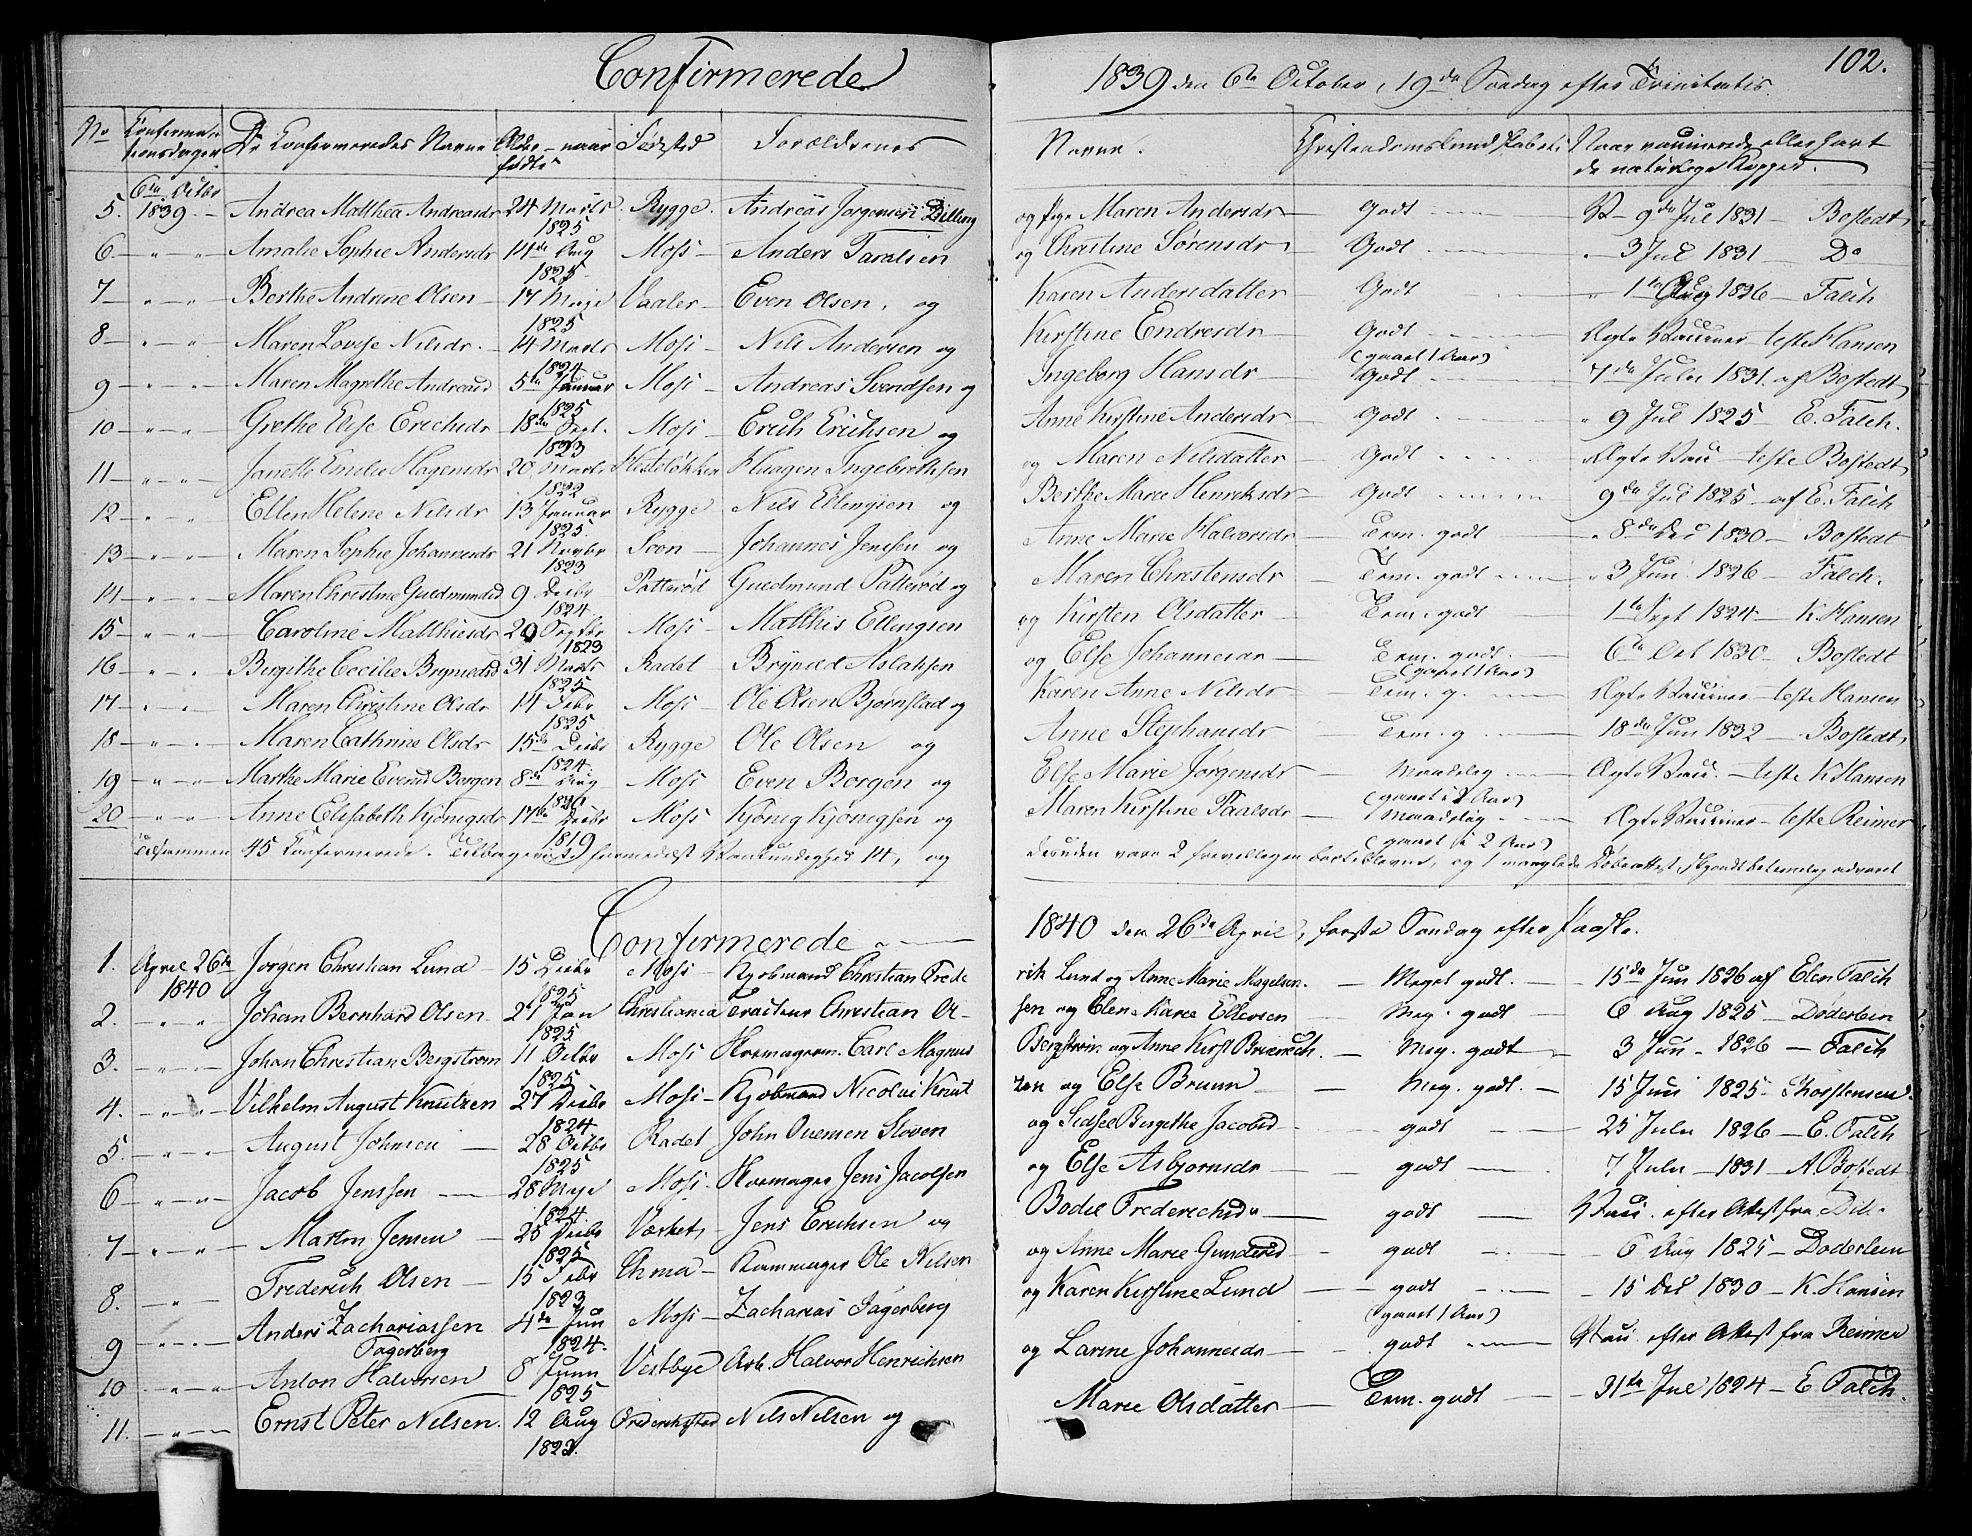 Confirmerede 1839 den 6te October, 19de Søndag efter Trinitatis. 102.
No Confirmationsdagen De Confirmeredes Navne Alder naar fødte Fødested Forældrenes Navne. Christendomskundskaber Naar vaccinerede eller havt de naturlige Kopper.
6te Octbr
5. 1839. Andrea Matthea Andreasdr 24 Marts Rygge. Andreas Jørgensen Dilling og Maren Andersdr Godt V 9de Jul 1831 Bostedt
1825
6 " " Amalie Sophie Andersdr 14de Aug Moss Anders og Christine Sørensdr Godt. " 3 Jul 1831 Do
1825
7 " " Berthe Andrine Olsen 17 Maje Vaaler Even Olsen, og Karen Andersdatter Godt " 1te Aug 1826 Falch
1825
8 " " Maren Lovise Nilsdr. 14 Marts Moss Nils Andersen og Kirstine Endresdr Godt Ægte Vaccines teste Hansen
1824 (gaaet 1 Aar)
9 " " Maren Magrethe Andreasd 5te Januar Moss Andreas Svendsen og Ingeborg Hansdr Godt 7de Julii 1831. af Bostedt
1825
10 " " Grethe Else Erichsdr 18de Sept. Moss Erich Erichsen og Anne Kirstine Andersdr Godt " 9 Jul 1825 E. Falch.
1823
11 " " Janette Emilie Hagensdr 20 Marts Hesteløkken Haagen Ingebrethsen og Maren Nilsdatter Godt Ægte Vac teste Bostedt
1822
12 " " Ellen Helene Nilsdr 13 Januar Rygge Nils Ellingsen og Berthe Marie Henriksdr Godt 9de Jul 1825 af E. Falch
1825.
13 " " Maren Sophie Johannesdr 21 Novbr Soon Johannes Jensen og Anne Marie Halvorsdr Tem. godt " 8de Oct 1830 Bostedt
1823
14 " " Maren Christine Guedmundsd 9 Decbr Patterød Guedmund Patterød og Maren Christensdr Tem. godt " 3 Jun. 1826 Falch.
1824
15 " " Caroline Matthisdr 20 Septbr Moss Matthis Ellingsen og Kirsten Olsdatter Tem. godt 1te Sept 1824 K. Hansen
1823
16 " " Birgithe Cecilie Brynildsd 31 Marts Radet Brynild Aslaksen og Else Johannesdr Tem. godt. 6te Oct 1830 Bostedt
1825 (gaaet 1 Aar)
17 " " Maren Christine Olsdr 14 Febr Moss Ole Olsen Bjørnstad og Karen Anne Nilsdr Tem. g. Ægte Vaccines teste Hansen
1825
18 " " Maren Cathrine Olsdr 15de Decbr Rygge Ole Olsen og Anne Stephansdr Tem. g 18de Jun 1832 Bostedt
1824.
19 " " Marthe Marie Evensd Borgen 8de Aug Moss Even Borgen og Else Marie Jørgensdr Maadelig Ægte Vac. teste K. Hansen
(gaaet i 2 Aar)
20 " " Anne Elisabeth Kjønigsdr 17de Decbr Moss Kjønig Kjønigsen og Maren Kirstine Paalsdr Maadelig Ægte Vaccines teste Reimer
1819 (gaaet i 2 Aar)
Tilsammen 45 Confirmerede. formedelst Vankundighed 14, og desuden vare 2 frivilligen bortebleven, og 1 manglede Døbeattest, skjøndt betimelig advaret
Confirmerede 1840 den 26de April, første Søndag efter Paaske.
1. April 26de Jørgen Christian Lund 15 Decbr Moss Kjøbmand Christian Fredrik Lund og Anne Marie Magelsen. Meget godt. 15de Jun 1826 af Elen Falch
1840 1825
2. " " Johan Bernhard Olsen 27 Jan Christiania Tracteur Christian Olsen og Elen Karie Ellevsen Meg. godt 6 Aug 1825 Døderlein
1825.
3. " " Johan Christian Bergstrøm 11 Octbr Moss Skomagerm. Carl Magnus Bergstrøm og Anne Kirst Meg. godt 3 Jun 1826 Falch
1825
4. " " Vilhelm August Knutzen 27 Decbr Moss Kjøbmand Nicolai Knutzen og Else Bruun Meg. godt. 15 Juni 1825 Thorstensen
1824
5. " " August Johnsen 28 Octbr Radet John Sloven og Sidsel Birgithe Jacobsd godt 25 Julii 1826 E. Falch
1825
6 " " Jacob Jenssen 28 Maje Moss. Skomager Jens Jacobsen og Else Asbjørnsdr godt 7 Julii 1831 A. Bostedt
1824
7 " " Martin Jensen 25 Decbr Værket Jens Erichsen og Bodil Frederichsdr godt Vacc. efter Attest fra
1825
8. " Frederich Olsen 15 Febr Chrnia Skommager Ole Nilsen og Anne Marie Gundersd godt 6 Aug 1825 Døderlein
1823
9 " " Anders Zachariassen Fagerberg 4de Jun Moss Zacharias Fagerberg og Karen Kirstine Lund godt 15 Oct 1830 K. Hansen
1824. (gaaet 1 Aar)
10 " " Anton Halvorsen 8 Juni Vestbye Arb. Halvor Henrichsen og Larine Johannesdr godt Vacc efter Attest fra Reimer
1825
11. " " Ernst Peter Nilsen. 12 Aug Fredrikstad Nils Nilsen og Marie Olsdatter Tem. godt 31te Jul 1824 E Falch.